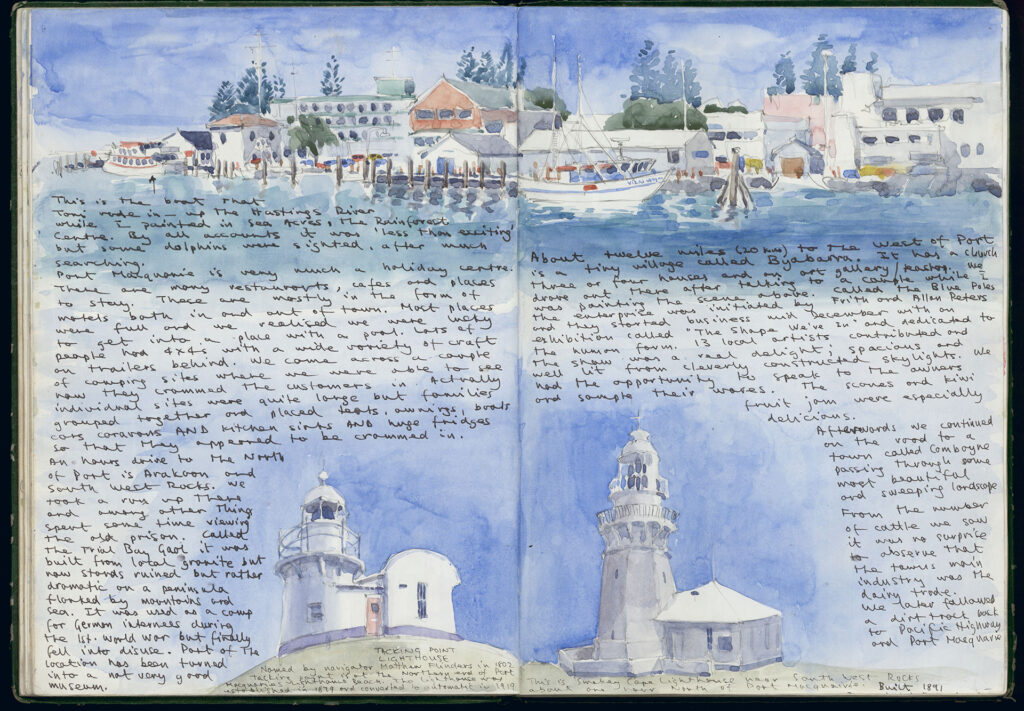 This is the boat that
Toni rode in — up the Hastings River
while I painted in Sea Acres, the Rainforest
Centre. By all accounts it was 'less than exciting'
but some dolphins were sighted, after much
searching.
Port Macquarie is very much a holiday centre.
There are many restaurants, cafes and places
to stay. These are mostly in the form of
motels both in and out of town. Most places
were full and we realised we were lucky
to get into a place with a pool. Lots of
people had 4x4s with a wide variety of craft
on trailers behind. We came across a couple
of camping sites where we were able to see
how they crammed the customers in. Actually
individual sites were quite large but families
grouped together and placed tents, awnings, boats
cars caravans AND kitchen sinks AND huge fridges
so that they appeared to be crammed in.
An hours drive to the North
of Port is Arakoon and
South West Rocks. We
took a run up there
and among other things
spent some time viewing
the old prison. Called
the Trial Bay Gaol it was
built from local granite but
now stands ruined but rather
dramatic on a peninsula
flanked by mountains and
sea. It was used as a camp
for German internees during
the 1st. World War but finally
fell into disuse. Part of the
location has been turned
into a not very good
museum.
TACKING POINT
LIGHTHOUSE
Named by navigator Matthew Flinders in 1802
Tacking Point is at the Northern end of Port
Macquarie's Lighthouse Beach. Lighthouse was
established in 1879 and converted to automatic in 1919
About twelve miles (20 km) to the west of Port
is a tiny village called Byabarra. It has a church
three or four houses and an art gallery/teashop. We
drove out there after talking to a couple while I
was painting the scene above. Called The Blue Poles
the enterprise was initiated by Frith and Allan Peters
and they started business mid December with an
exhibition called "The Shape We're In" and dedicated to
the human form. 13 local artists contributed and
the show was a real delight, spacious and
well lit from cleverly constructed skylights. We
had the opportunity to speak to the owners
and sample their wares. The scones and kiwi
fruit jam were especially
delicious.
Afterwards we continued
on the road to a
town called Comboyne
passing through some
most beautiful
and sweeping landscape
From the number
of cattle we saw
it was no surprise
to observe that
the town's main
industry was the
dairy trade.
We later followed
a dirt tract back
to Pacific Highway
and Port Macquarie
This is Smokey Cape Lighthouse near South West Rocks
about one hour North of Port Macquarie. Built 1891